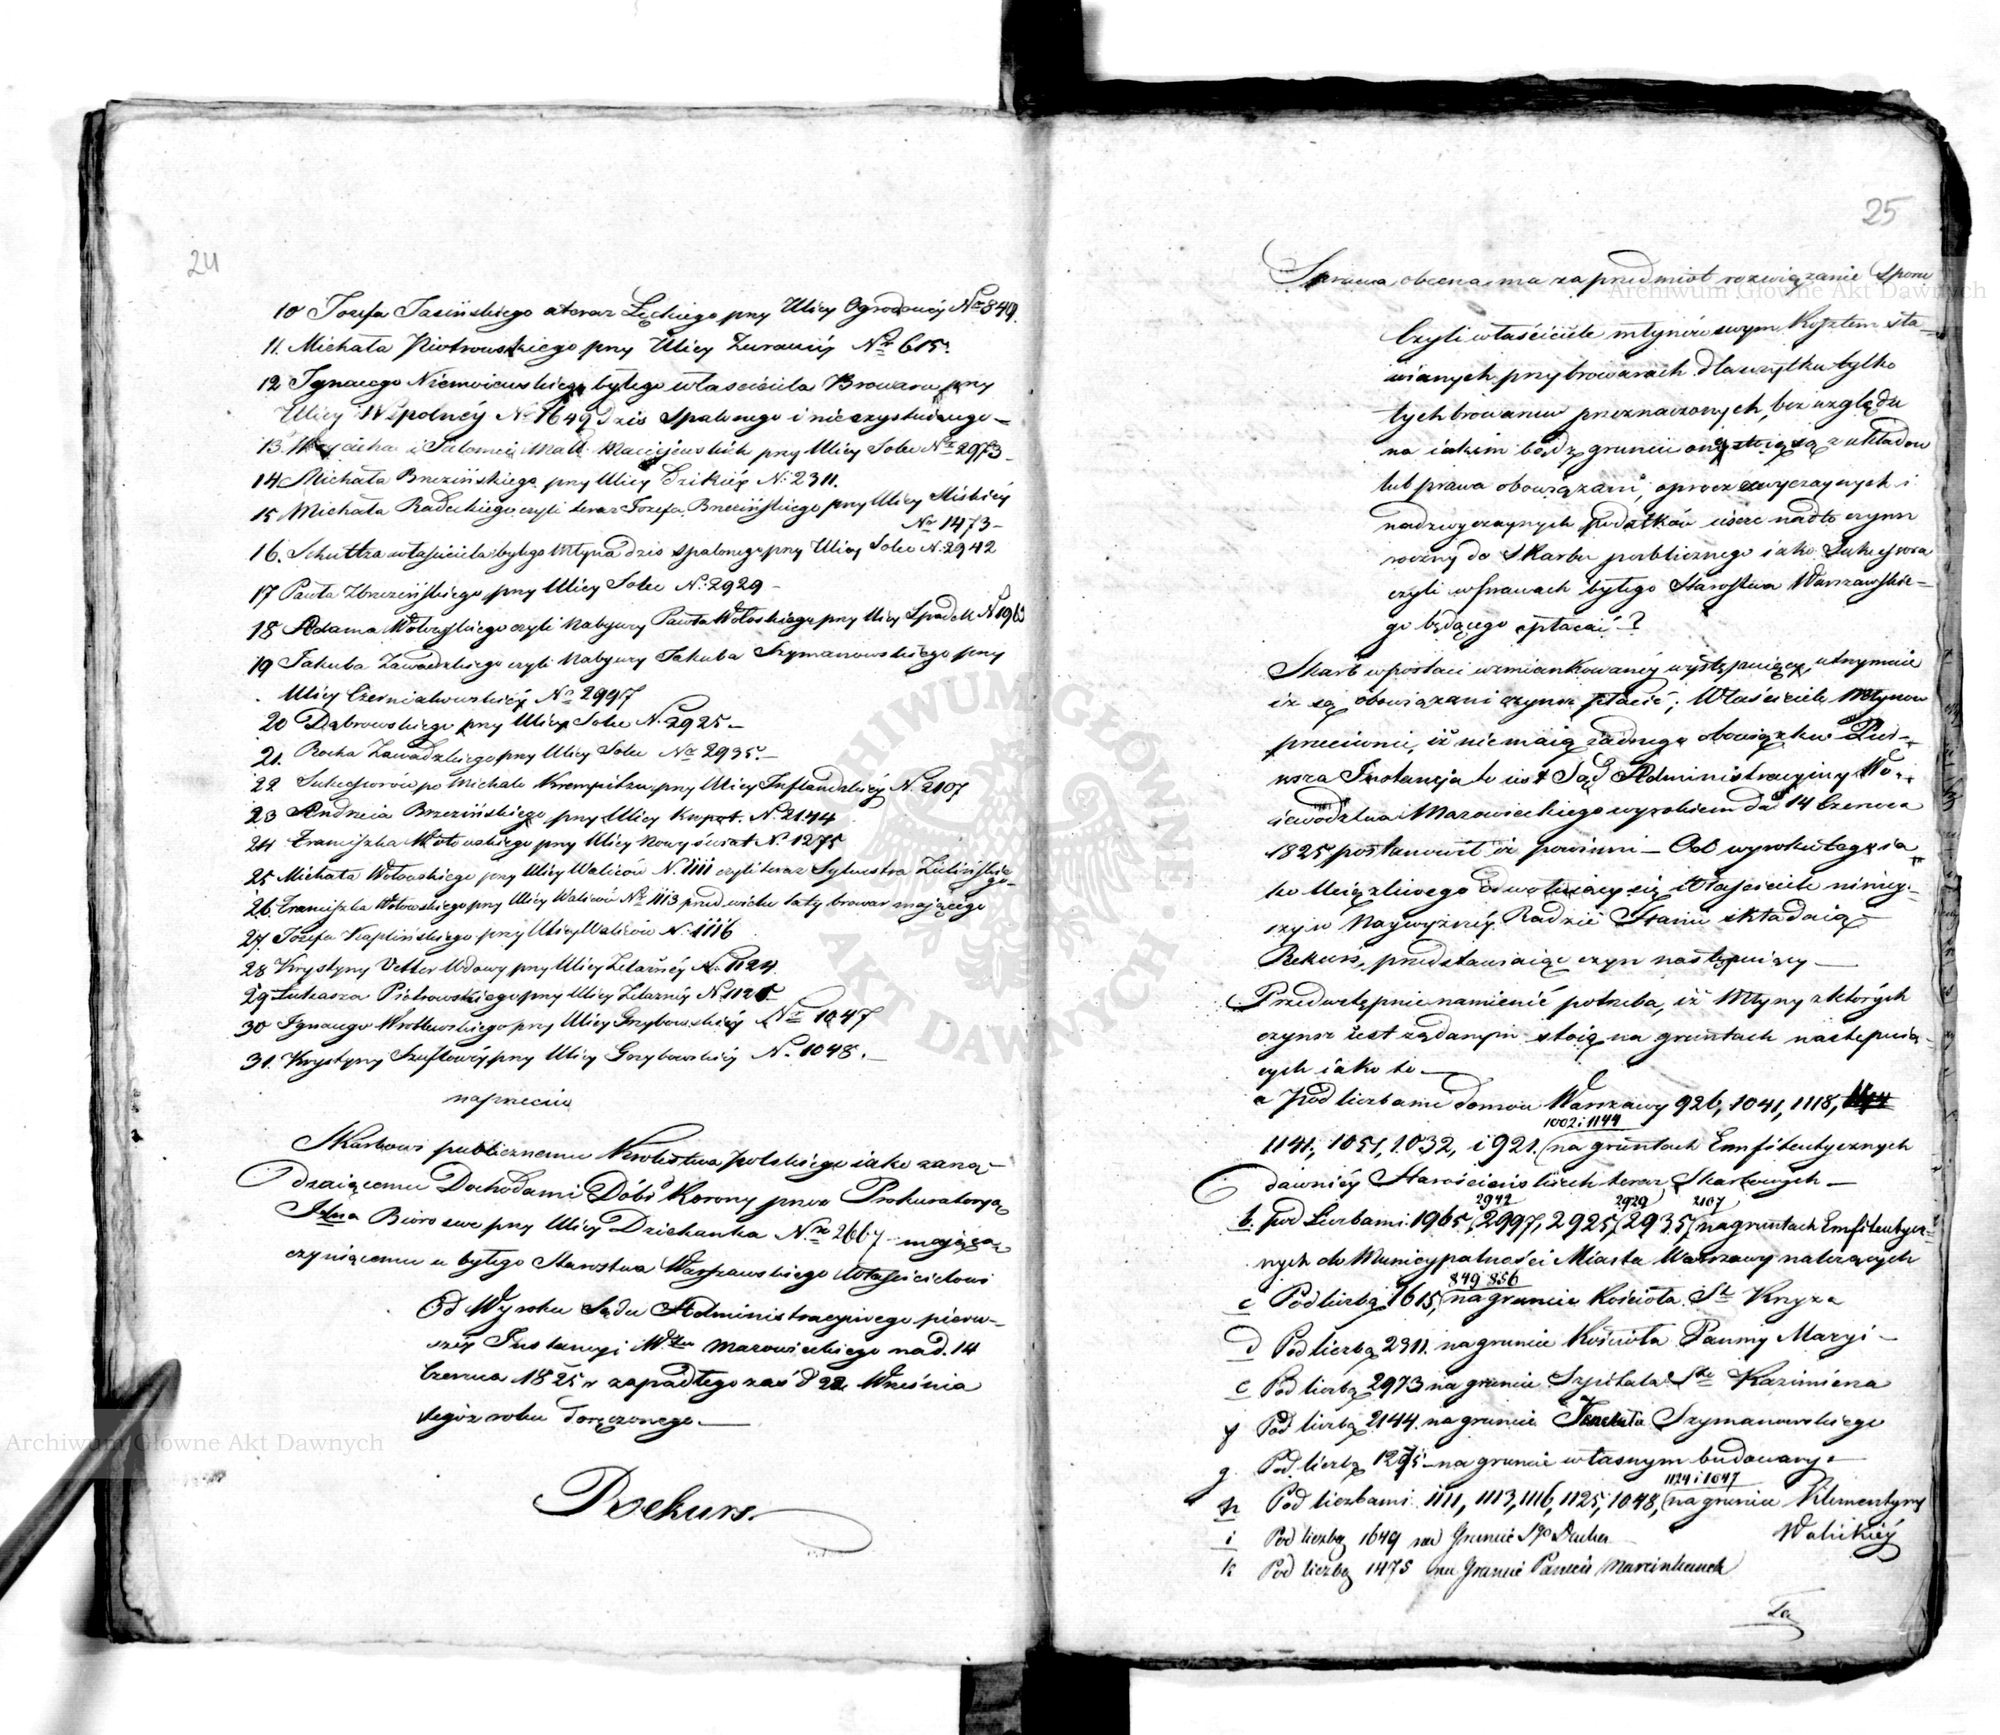 24
10 Jozefa Jasińskiego a teraz Łęckiego przy Ulicy Ogrodowéy Nro 849.
11. Michała Piotrowskiego przy Ulicy Zurawiéy Nr 615.
12 Ignacego Niemoiewskiego byłego właściciela Browaru przy
Ulicy Wspolnéy Nr 1649 dziś spalonego i nieexystuiącego –
13. i Salomei Małż: Maciejewskich przy Ulicy Solec Nro 2973 –
14. Michała Brzezińskiego przy Ulicy Dzikiéy N: 2311.
15 Michała Radeckiego czyli teraz Jozefa Brzezińskiego przy Ulicy
Nro 1473 –
16. Schultza właściciela byłego Młyna dziś spalonego przy Ulicy Solec N. 2942
17 Pawła Zbrzezińskiego przy Ulicy Solec N: 2929 –
18 Adama czyli Nabywcy Pawła Wołoskiego przy Ulicy Spadek N
19 Jakuba Zawadzkiego czyli Nabywcy Jakuba Szymanowskiego przy
Ulicy Czerniakowskiéy Nro 2997
20 Dąbrowskiego przy Ulicy Solec N. 2925 –
21. Rocha Zawadzkiego przy Ulicy Solec Nro 2935. –
22 Sukcessorów po Michale przy Ulicy Inflandzkiéy N. 2107
23 Andrzeia Brzezińskiego przy Ulicy N. 2144
24 Franciszka Wołowskiego przy Ulicy Nowy świat N. 1275
25 Michała Wołowskiego przy Ulicy Waliców N. 1111 czyli teraz Sylwestra Zielińskie
go –
26. Franciszka Wołowskiego przy Ulicy Waliców Nro 1113 przed wielu laty browar maiącego
27. Jozefa Kaplińskiego przy Ulicy Waliców N. 1116
28 Krystyny Vetter Wdowy przy Ulicy Żelaznéy N. 1124
29 Łukasza Piotrowskiego przy Ulicy Żelaznéy N. 1125
30 Ignacego Wrotlewskiego przy Ulicy Grzybowskiéy Nro 1047
31. Krystyny przy Ulicy Grzybowskiéy N. 1048. –
naprzeciw
Skarbowi publicznemu Krolestwa Polskiego iako zarzą–
dzaiącemu Dochodami Dóbr Korony przez Prokuratoryą
Jlną Bióro swe przy Ulicy Dziekanka Nro 2667 maiącą
czyniącemu a byłego Starostwa Warszawskiego Właścicielowi
Od Wyroku Sądu Administracyinego pierw–
széy Instancyi Wdztwa Mazowieckiego na d. 14
Czerwca 1825 r zapadłego zaś d 22 Września
tegoż roku doręczonego. –
Rekurs.
25
Sprawa obecna ma za przedmiot rozwiązanie Sporu
Czyli właściciele młynów swym Kosztem sta–
wianych przy browarach dla użytku tylko
tych browarów przeznaczonych, bez względu
na iakim bądź gruncie one stoią są z układow
lub prawa obowiązani, oprocz zwyczaynych i
nadzwyczaynych podatków ieszcze nadto czynsz
roczny do Skarbu publicznego iako Sukcessora
czyli w prawach byłego Starostwa Warszawskie–
go będącego opłacać?
Skarb w postaci wzmiankowanéy występuiący, utrzymuie
iż są obowiązani czynsz płacić; Właściciele Młynow
przeciwnie, iż nie maią żadnego obowiązku Pier–
wsza Instancja to iest Sąd Administracyiny Wo–
iewodztwa Mazowieckiego wyrokiem de 14 Czerwca
1825 postanowił iż powinni – Od wyroku tego ia
ko Uciążliwego odwołuiący się Właściciele niniey–
szy w Naywyższéy Radzie Stanu składaią
Rekurs, przedstawiaiąc czyn następuiący –
Przedwstępnie namienić potrzeba, iż Młyny z których
czynsz iest żądanym stoią na gruntach następuią–
cych iako to –
a Pod liczbami domow Warszawy 926, 1041, 1118,
1002 i 1144
1141, 1051, 1032, i 921. (na gruntach Emfiteutycznych
dawniéy Starościńskich teraz Skarbowych –
2942 2929 2107
b. pod Liczbami 1965, (2997, 2925, (2935, (na gruntach Emfiteutycz–
nych do Municypalności Miasta Warszawy należących
849 856
c Pod liczbą 1615, (na gruncie Kościoła St Krzyża
d Pod liczbą 2311. na gruncie Kościoła Panny Maryi –
e Pod liczbą 2973 na gruncie Szpitala Sto Kazimierza
f Pod liczbą 2144. na gruncie Szymanowskiego
g. Pod liczbą 1275 – na gruncie własnym budowany. –
1124 i 1047
h Pod liczbami 1111, 1113, 1116, 1125, 1048, (na gruncie Klementyny
Walickiéy
i Pod liczbą 1649 na Gruncie Sgo Ducha
k Pod liczbą 1475 na Gruncie Panien Marcinkanek
Ta
Archiwum Główne Akt Dawnych
Archiwum Główne Akt Dawnych
ARCHIWUM GŁÓWNE AKT DAWNYCH